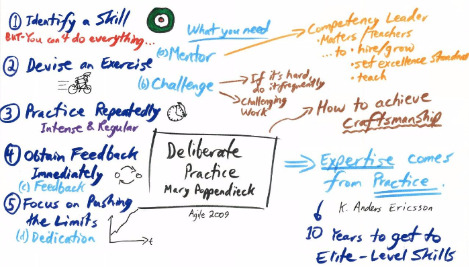 ① Identify a Skill
BUT-You can't do everything...
② Devise an Exercise
③ Practice Repeatedly
Intense & Regular
④ Obtain Feedback
Immediately
(c) Feedback
⑤ Focus on Pushing
the Limits
(d) Dedication
t
What you need
(a) Mentor
(b) Challenge
If it's hard,
do it frequently
Challenging
Work
Competency Leader
Masters/Teachers
...to • hire/grow
• set excellence standards
• teach
How to achieve
Craftsmanship
Deliberate
Practice
Mary Poppendieck
Agile 2009
Expertise comes
from Practice.
K. Anders Ericsson
10 Years to get to
Elite-Level Skills